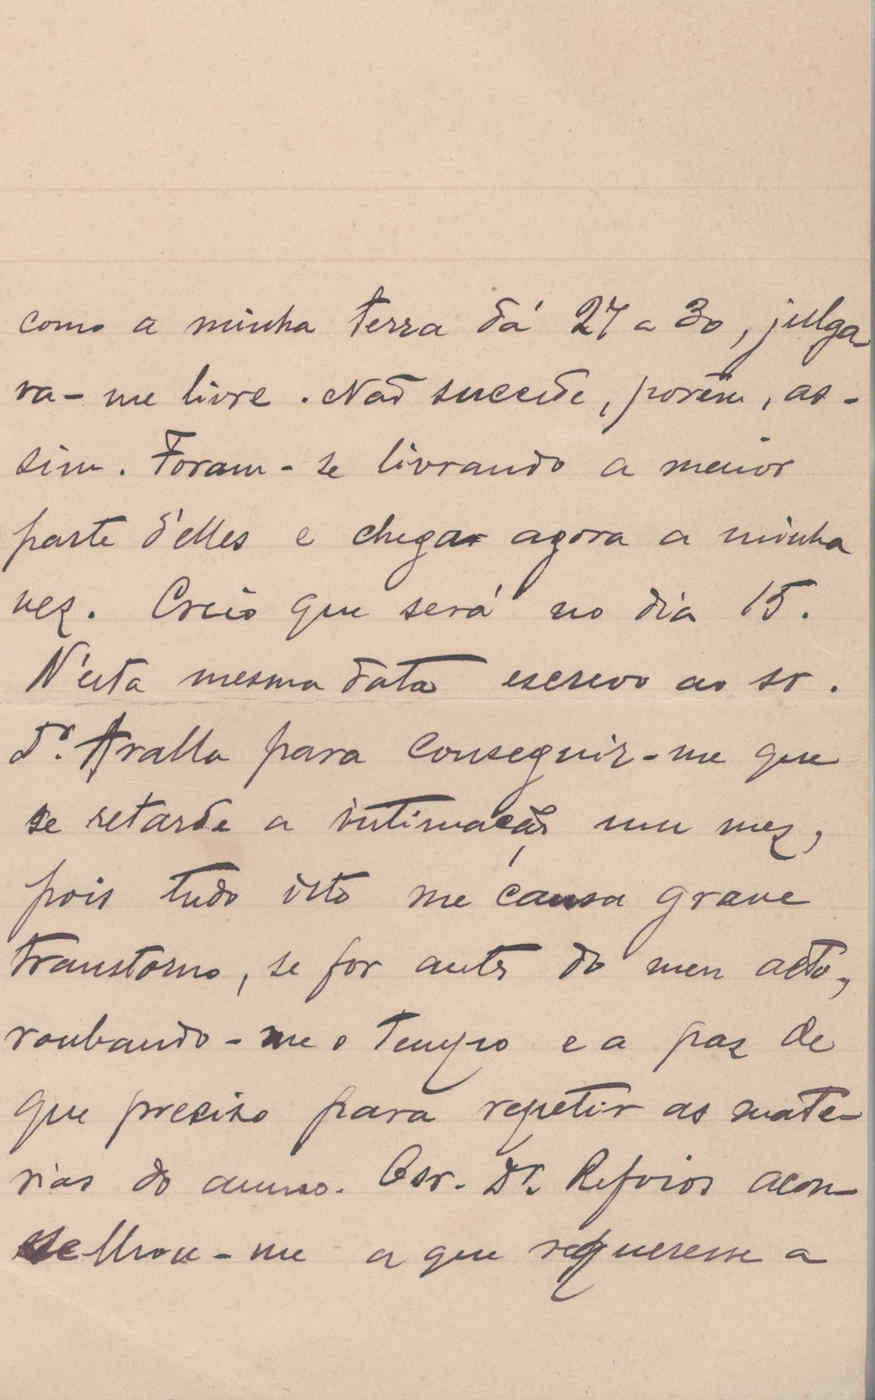 como a minha terra dá 27 a 30, julga
va-me livre. Não succede, porém, as-
sim. Foram-se livrando a maior
parte d'elles e chega agora a minha
vez. Creio que será no dia 15.
N'esta mesma data escrevo ao sr.
Dr. Aralla para conseguir-me que
se retarde a intimação um mez,
pois tudo isto me causa grave
transtorno, se for antes do meu acto,
roubando-me o tempo e a paz de
que preciso para repetir as mate-
rias do anno. O sr. Dr. Refoios acon-
selhou-me a que requeresse a